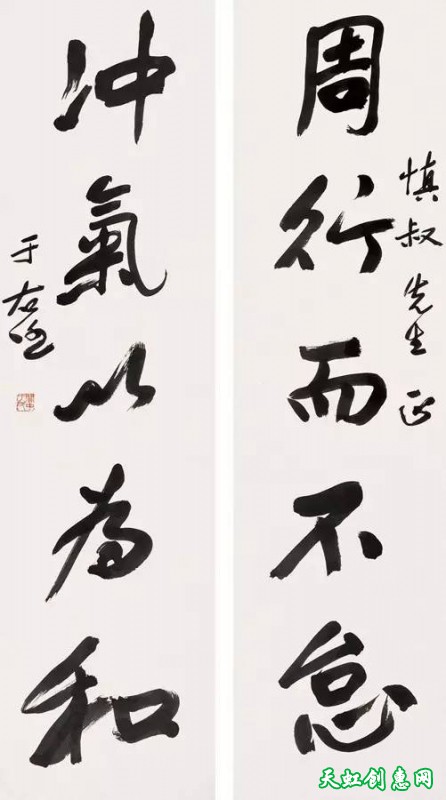 慎叔先生正
周行而不怠
冲氣以為和
于右任
天虹创惠网